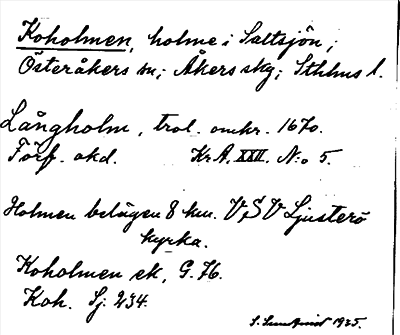 Koholmen, holme i Saltsjön;
Österåkers sn; Åkers skg; Sthlms l.
Långholm, trol. omkr. 1670.
Förf. okd. Kr.A. XXII. N:o 5.
Holmen belägen 8 km. VSV Ljusterö
kyrka.
Koholmen ek, G. 76.
Koh. Sj. 234.
S. Sundqvist 1935.